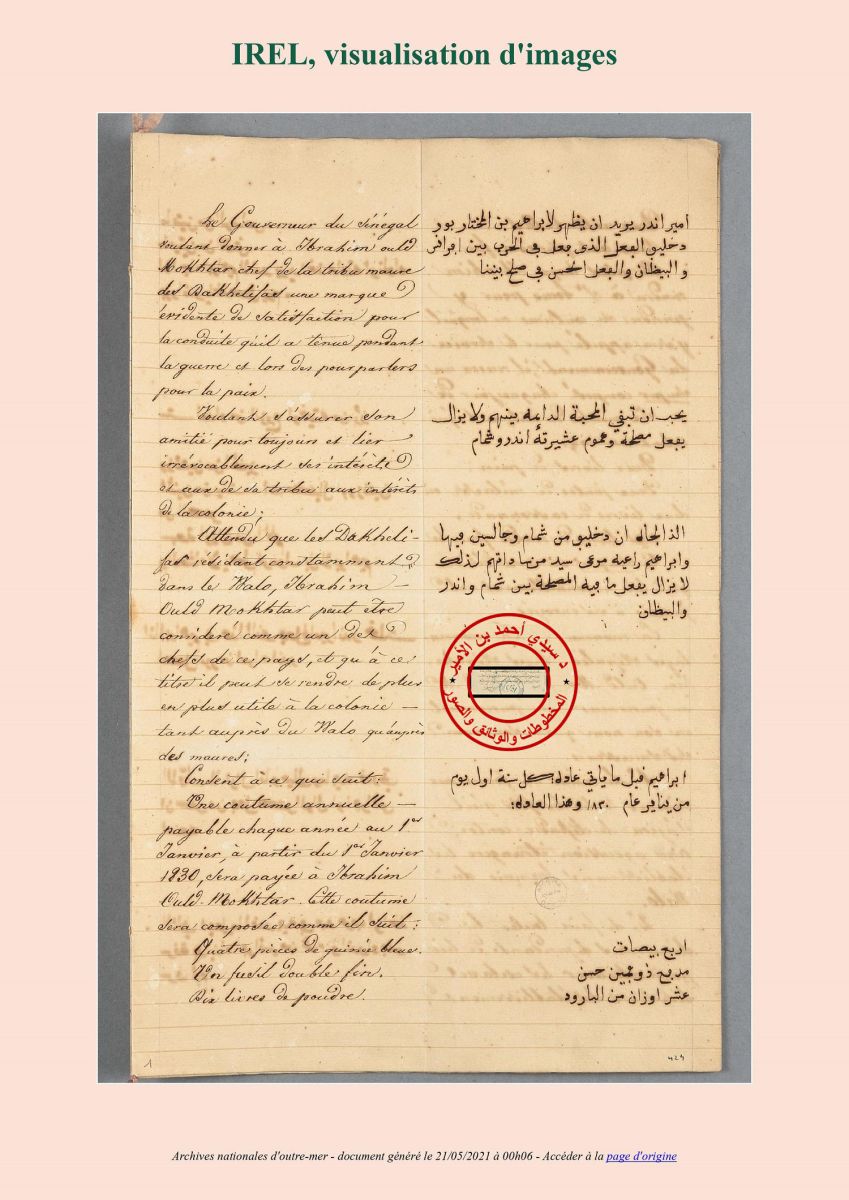 IREL, visualisation d'images
Le Gouverneur du Sénégal
voulant donner à Ibrahim ould
Mokhtar chef de la tribu maure
des Dakhelifas une marque
évidente de satisfaction pour
la conduite qu'il a tenue pendant
la guerre et lors des pourparlers
pour la paix.
Voulant s'assurer son
amitié pour toujours et lier
irrévocablement ses intérêts
et aux de sa tribu aux intérêts
de la colonie;
Attendu que les Dakheli-
fas résidant constamment
dans le Walo, Ibrahim
Ould Mokhtar peut être
considéré comme un des
chefs de ce pays, et qu'à ce
titre il peut se rendre de plus
en plus utile à la colonie
tant auprès du Walo qu'auprès
des maures;
Consent à ce qui suit:
Une coutume annuelle
payable chaque année au 1er
Janvier, à partir du 1er Janvier
1830, sera payée à Ibrahim
Ould-Mokhtar. Cette coutume
sera composée comme il suit:
Quatre pièces de guinée bleue.
Un fusil double fin.
Dix livres de poudre.
امير اندر يريد ان يظهر لابراهيم بن المختار بور
دخليڢ الڢعل الذى ڢعل ڢي الحرب بين اڢرانس
والبيظان والڢعل الحسن ڢي صلح بيننا
يحب ان تبڧي المحبة الدايمة بينهم ولا يزال
يڢعل مصلحة وعموم عشيرته اندر وشمام
ان دخليڢو من شمام وجالسين ڢيها
وابراهيم سيد من ساداتهم لذلك
لا يزال يڢعل ما ڢيه المصلحة بين شمام واندر
والبيظان
د سيدي أحمد بن الأمير
المخطوطات والوثائق والصور
ابراهيم ڧبل ما ياتي عادله كل سنة اول يوم
من يناير عام ١٨٣٠ وهذا العادله:
اربع بيصات
مدڢع ذو ڢمين حسن
عشر اوزان من البارود
1
424
Archives nationales d'outre-mer - document généré le 21/05/2021 à 00h06 - Accéder à la page d'origine